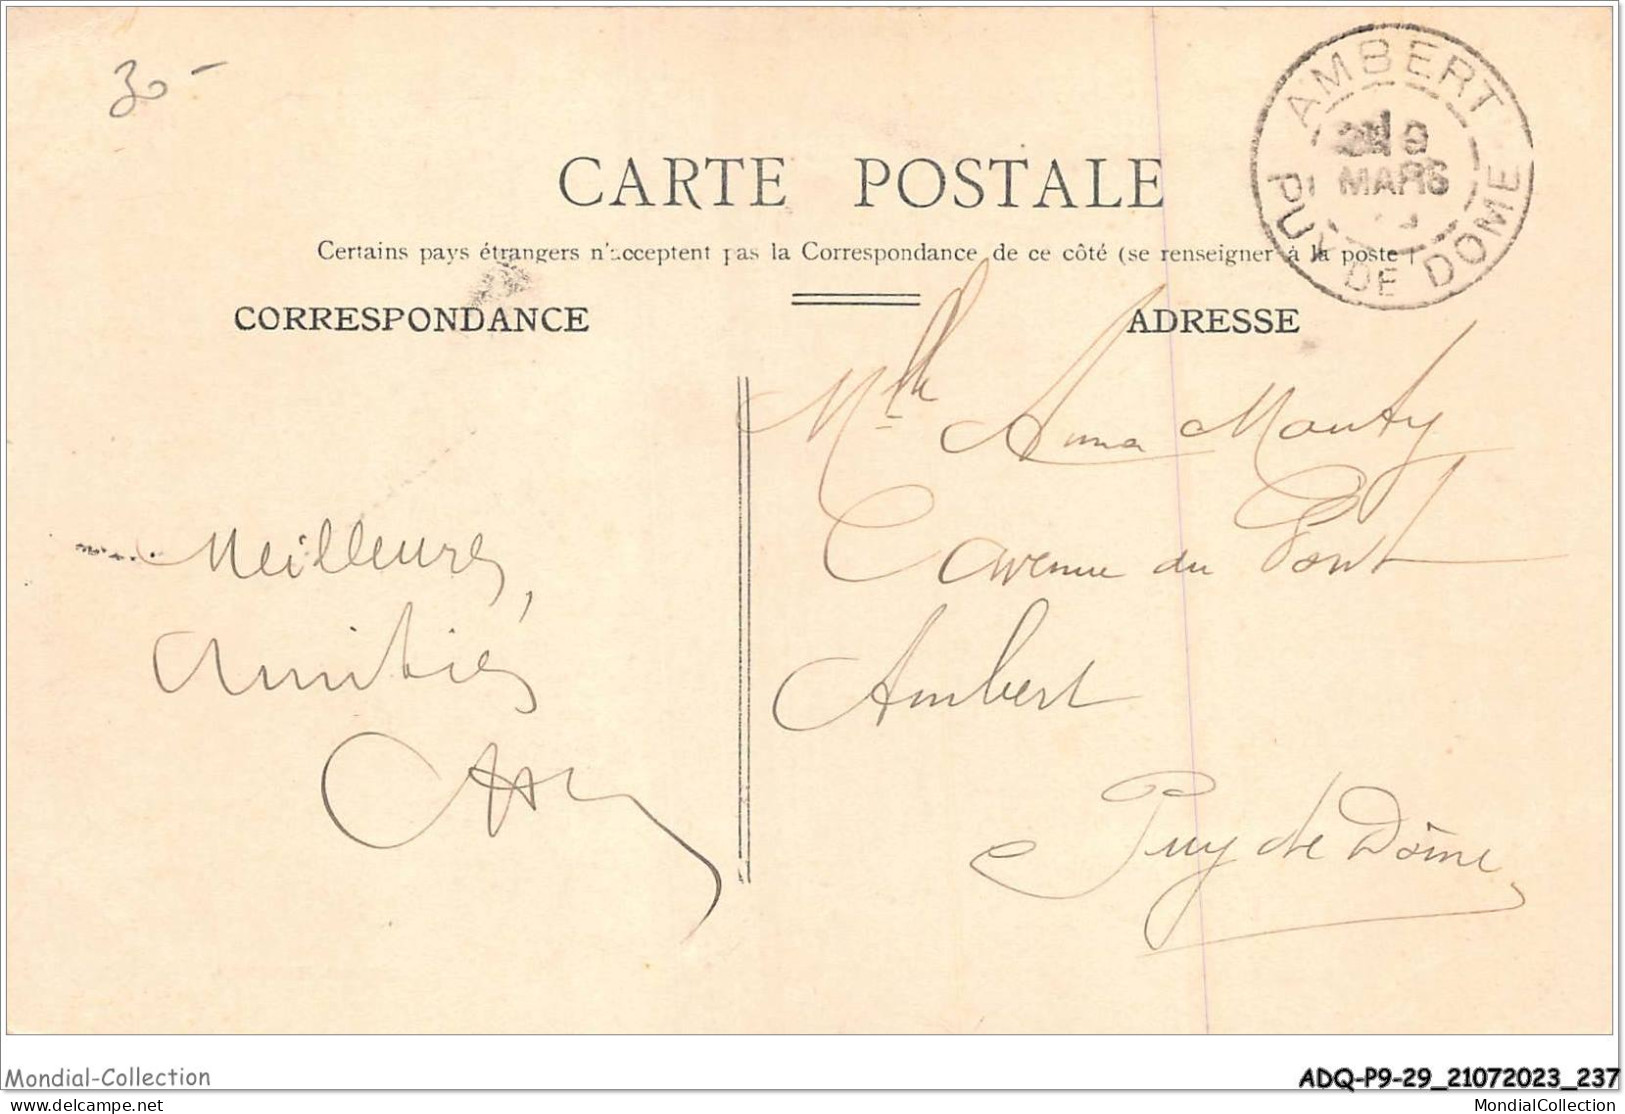 30 -
AMBERT
9
MARS
PUY DE DOME
CARTE POSTALE
Certains pays étrangers n'acceptent pas la Correspondance de ce côté (se renseigner à la poste)
CORRESPONDANCE
ADRESSE
Mlle Anna Mauty
avenue du Pont
Ambert
Puy de Dôme
Meilleures
Amitiés
Mondial-Collection
ADQ-P9-29_21072023_237
www.delcampe.net
MondialCollection